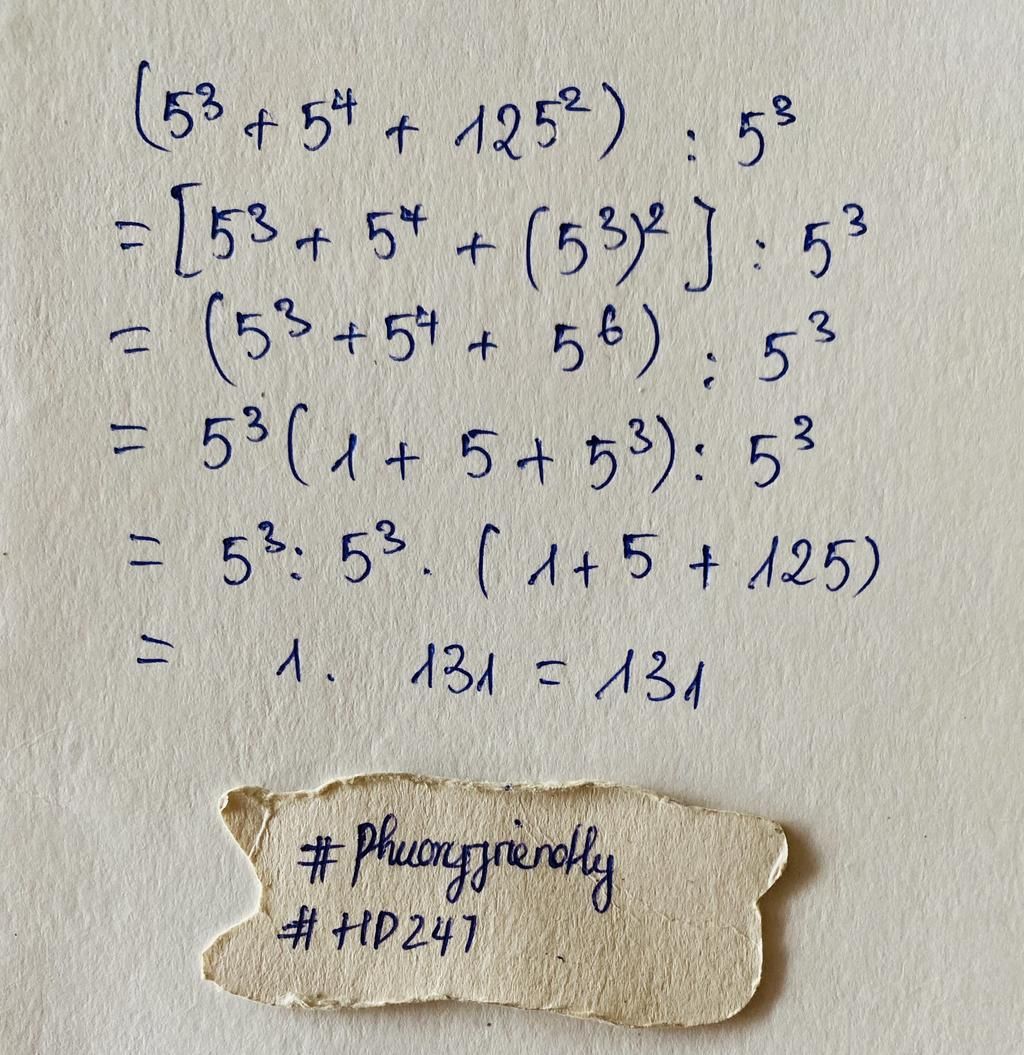 (5³ + 5⁴ + 125²) : 5³
= [5³ + 5⁴ + (5³)²] : 5³
= (5³ + 5⁴ + 5⁶) : 5³
= 5³(1 + 5 + 5³) : 5³
= 5³ : 5³ . (1 + 5 + 125)
= 1 . 131 = 131
# Phuongfriendly
# HD247